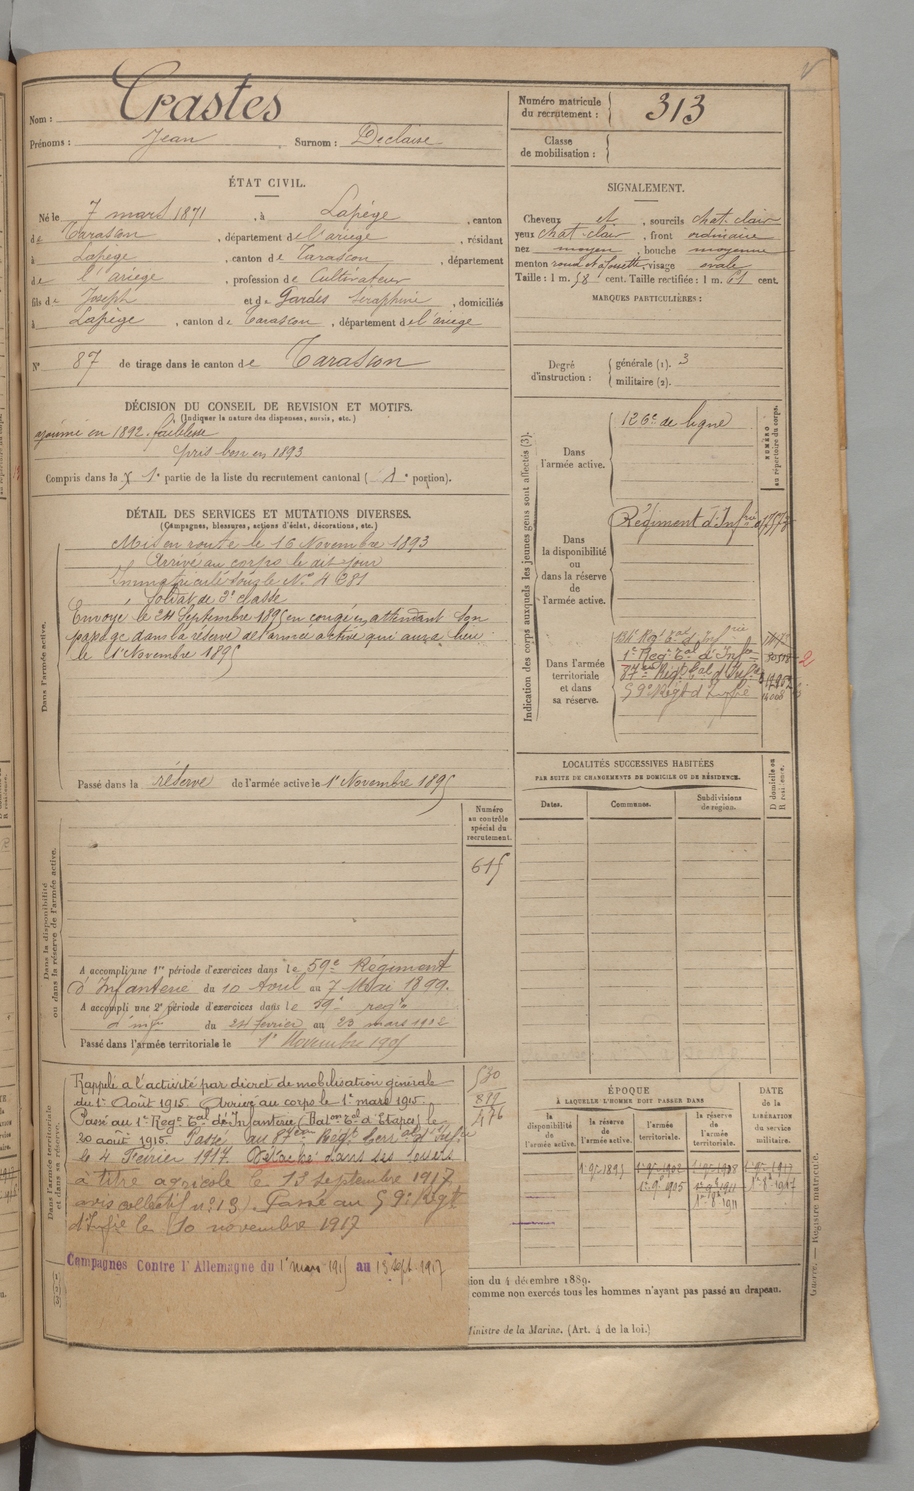 Nom : Crastes
Prénoms : Jean Surnom : Declaire
Numéro matricule du recrutement : 313
Classe de mobilisation :
ÉTAT CIVIL.
Né le 7 mars 1871, à Lapège, canton
de Tarascon, département de l'ariege, résidant
à Lapège, canton de Tarascon, département
de l'ariege, profession de Cultivateur
fils de Joseph et de Gardes Séraphine, domiciliés
à Lapège, canton de Tarascon, département de l'ariege
N° 87 de tirage dans le canton de Tarascon
SIGNALEMENT.
Cheveux et, sourcils chat. clair
yeux chat. clair, front ordinaire
nez moyen, bouche moyenne
menton rond et à fossette, visage ovale
Taille : 1 m. 58 cent. Taille rectifiée : 1 m. 61 cent.
MARQUES PARTICULIÈRES :
Degré d'instruction : générale (1). 3
militaire (2).
DÉCISION DU CONSEIL DE REVISION ET MOTIFS.
(Indiquer la nature des dispenses, sursis, etc.)
ajourné en 1892. faiblesse
pris bon en 1893
Compris dans la 1e partie de la liste du recrutement cantonal ( 1e portion).
DÉTAIL DES SERVICES ET MUTATIONS DIVERSES.
(Campagnes, blessures, actions d'éclat, décorations, etc.)
Dans l'armée active.
Mis en route le 16 Novembre 1893
Arrivé au corps le dit jour
Immatriculé sous le No 4381
Soldat de 2e classe
Envoyé le 24 Septembre 1895 en congé en attendant son
passage dans la réserve de l'armée active qui aura lieu
le 1r Novembre 1895
Passé dans la réserve de l'armée active le 1r Novembre 1895
Indication des corps auxquels les jeunes gens sont affectés (3).
NUMÉRO au répertoire du corps.
Dans l'armée active.
126e de ligne
Dans la disponibilité ou dans la réserve de l'armée active.
Régiment d'Infrie
Dans l'armée territoriale et dans sa réserve.
Regt tal d'Infrie
1er Regt tal d'Infie
87me Régt tal d'Infie
59e Régt d'Infie
2
LOCALITÉS SUCCESSIVES HABITÉES
PAR SUITE DE CHANGEMENTS DE DOMICILE OU DE RÉSIDENCE.
Dates. Communes. Subdivisions de région.
D domicile ou R résidence.
Dans la disponibilité ou dans la réserve de l'armée active.
Numéro au contrôle spécial du recrutement.
615
A accompli une 1re période d'exercices dans le 59e Régiment
d'Infanterie du 10 Avril au 7 Mai 1899.
A accompli une 2e période d'exercices dans le 59e regt
d'inf du 24 fevrier au 23 mars 1902
Passé dans l'armée territoriale le 1r Novembre 1905
Dans l'armée territoriale et dans sa réserve.
530
476
Rappelé à l'activité par décret de mobilisation générale
du 1er Août 1915. Arrivé au corps le 1er mars 1915.
Passé au 1er Regt tal d'Infanterie (Baton tal d'Etapes) le
20 août 1915. Passé au 87eme Regt terrial d'Infie
le 4 Février 1917. Détaché dans ses foyers
à titre agricole le 13 septembre 1917
avis collectif n° 13). Passé au 59e Régt
d'Infie le 10 novembre 1917
Campagnes Contre l'Allemagne du 1r mars 1915 au 13 sept 1917
ÉPOQUE
À LAQUELLE L'HOMME DOIT PASSER DANS
la disponibilité de l'armée active. la réserve de l'armée active. l'armée territoriale. la réserve de l'armée territoriale.
DATE de la LIBÉRATION du service militaire.
1r 9bre 1895
1r 9bre 1905
ion du 4 décembre 1889.
comme non exercés tous les hommes n'ayant pas passé au drapeau.
Ministre de la Marine. (Art. 4 de la loi.)
Guerre. — Registre matricule.